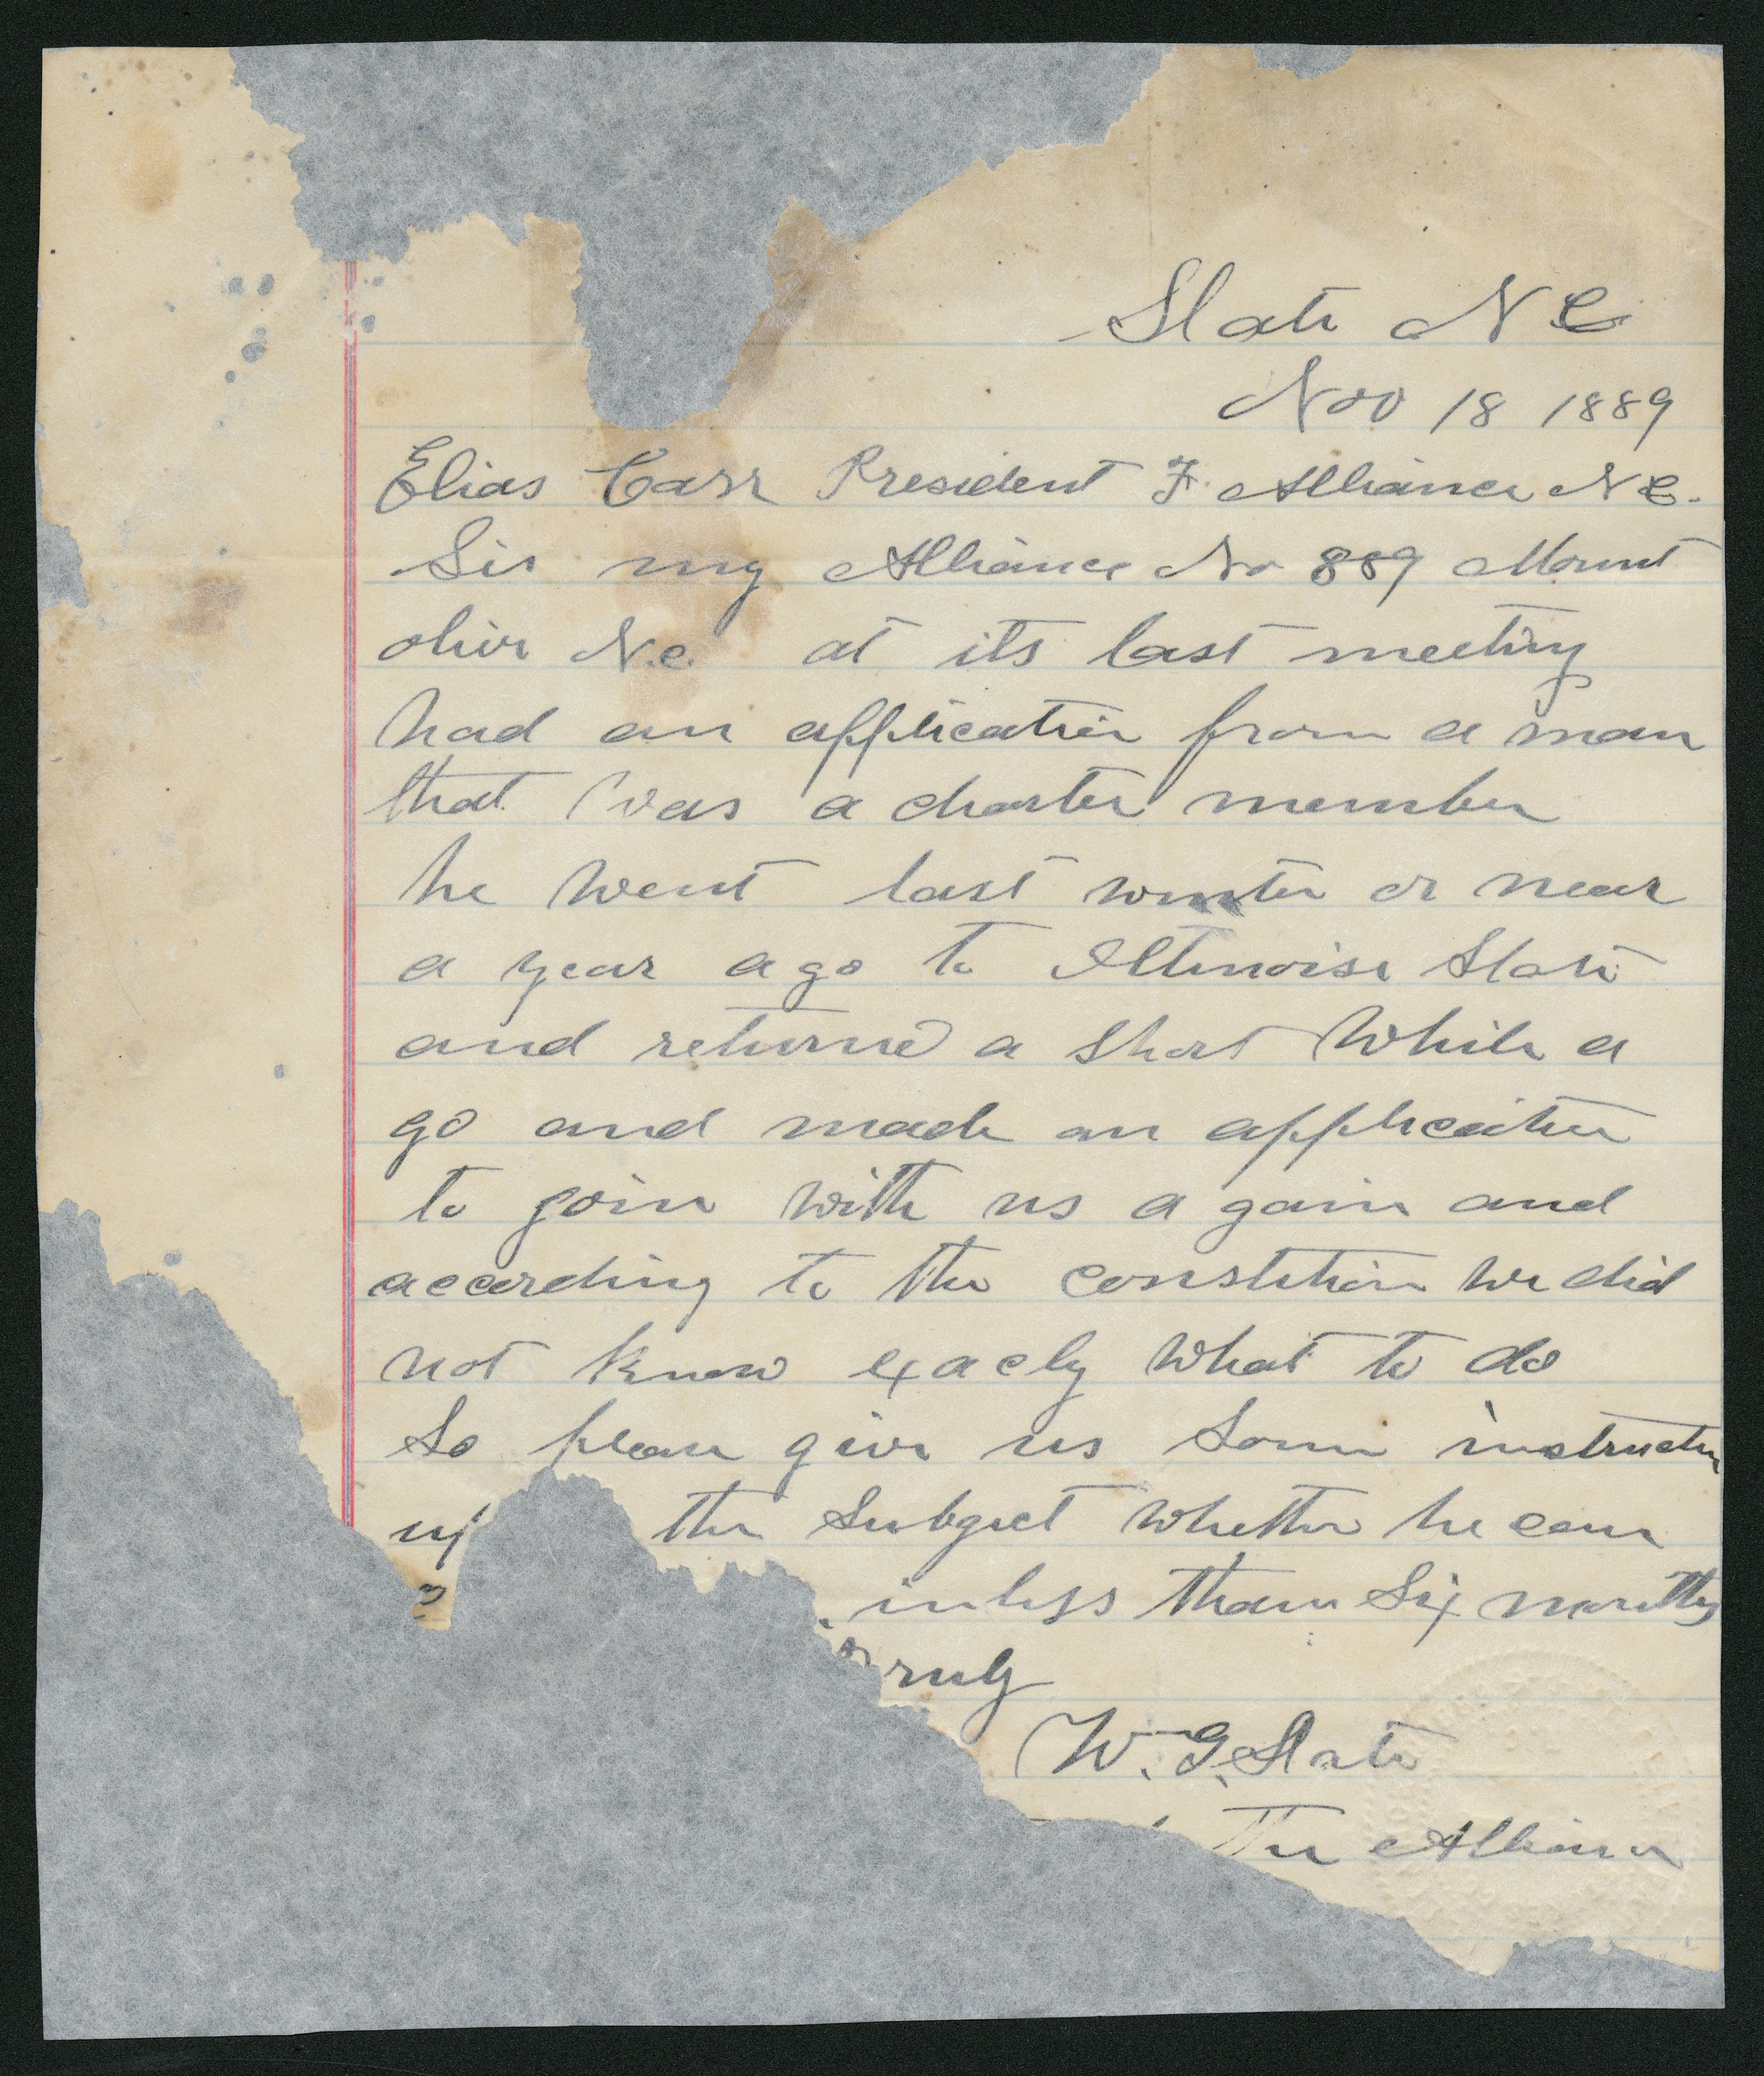 Slate N C
Nov 18 1889
Elias Carr President F. Alliance N C.
Sir my Alliance No 889 Mount
olive N.C. at its last meeting
had an application from a man
that was a charter member
he went last winter or near
a year a go to Illinoise State
and returned a short while a
go and made an application
to goin with us a gain and
according to the constitution we did
not know exacly what to do
So please give us some instruction
up the Subgect whether he can
in less than Six months
ruly
W. G. Slate
The Alliance